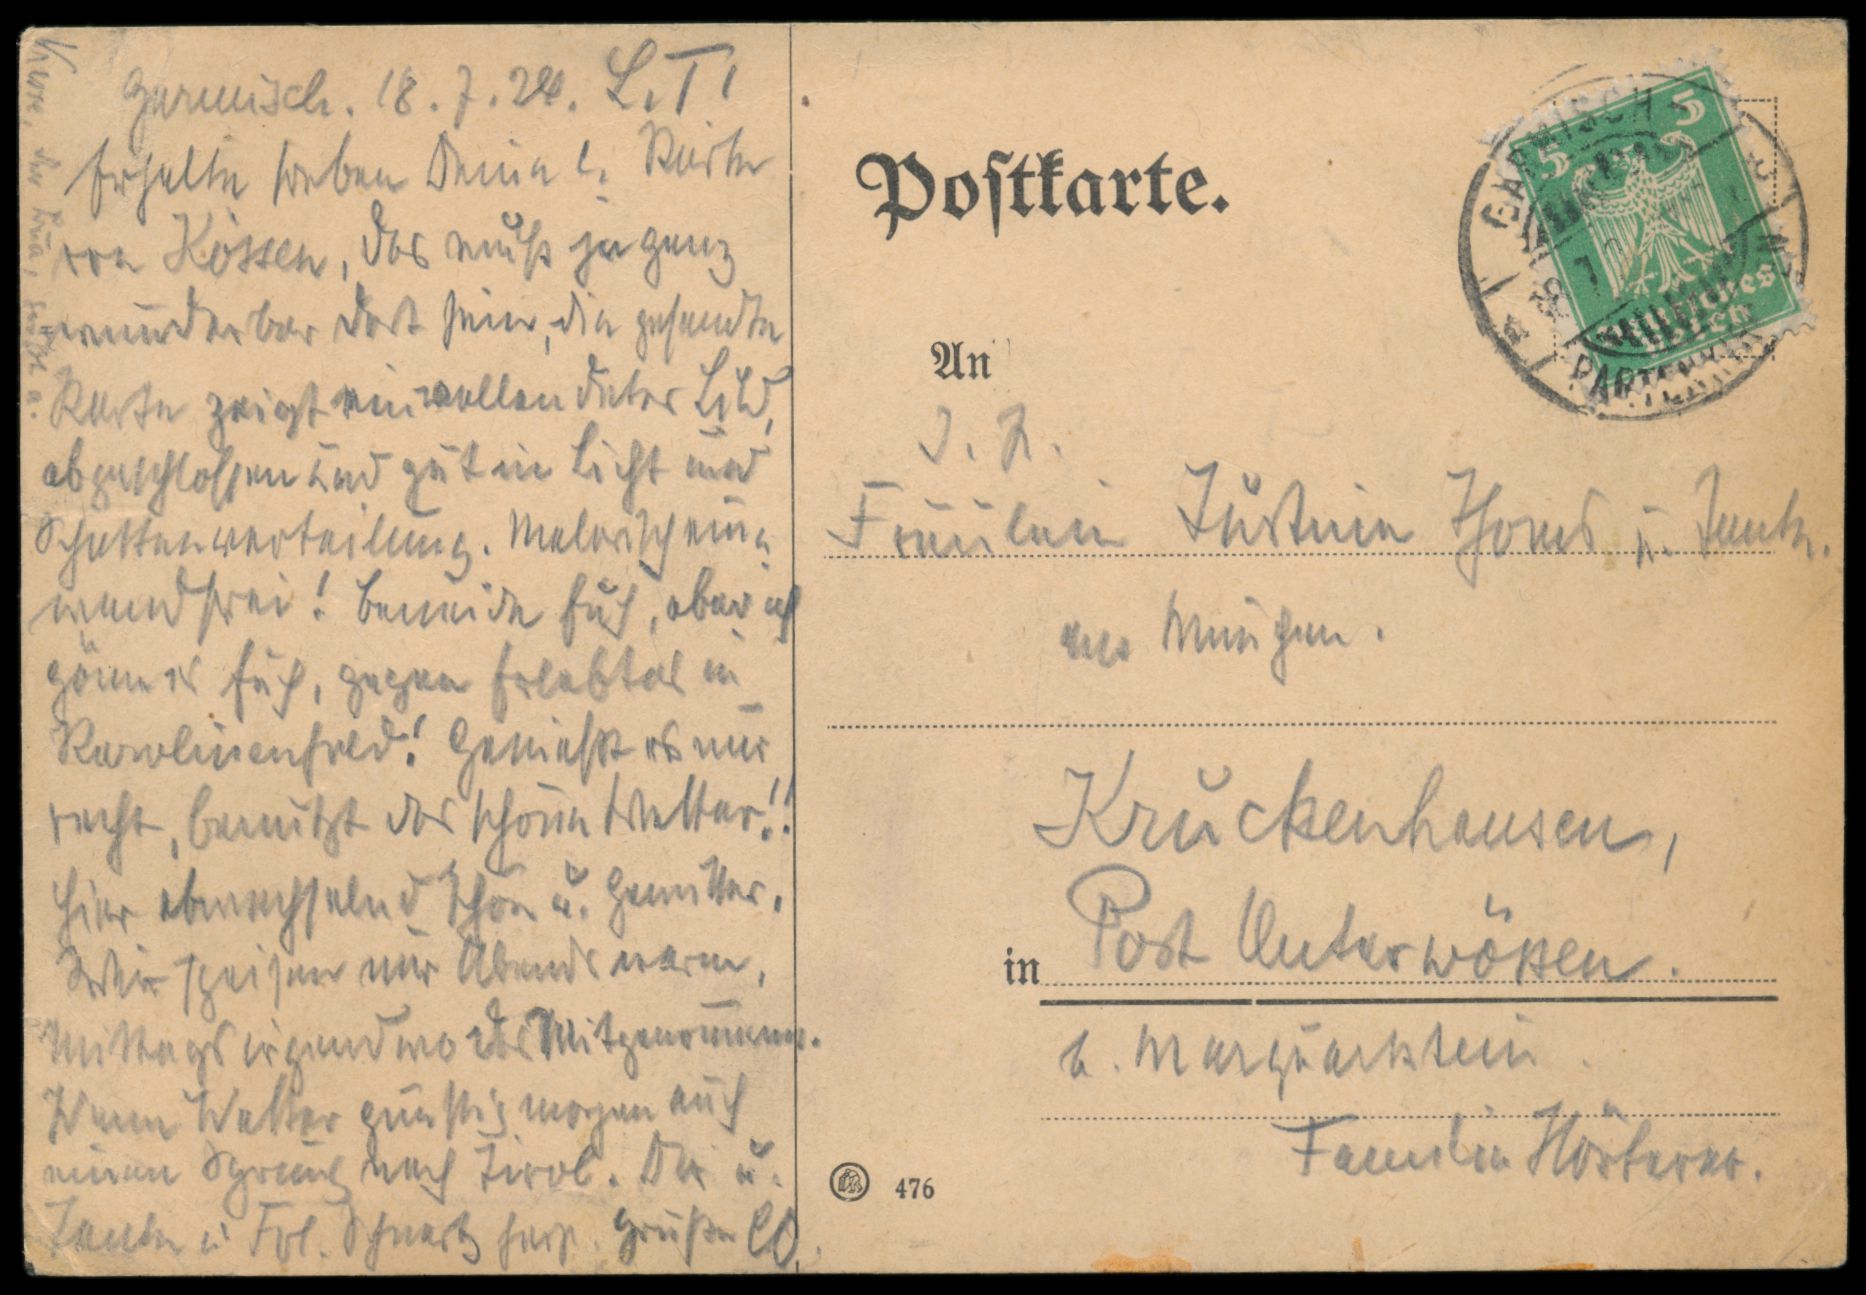 Garmisch. 18.7.24. L. T!
Erhalte soeben Deine l. Karte
von Kössen, das muß ja ganz
wunderbar dort sein, die gesandte
Karte zeigt ein vollendetes Bild,
abgeschlossen und gut in Licht und
Schattenverteilung. Malerisch ein-
wandfrei! Beneide Euch, aber ich
gönn es Euch, gegen Erlebtes in
Karolinenfeld! Genießt es nur
recht, benützt das schöne Wetter!!
Hier abwechselnd schön u. Gewitter.
Wir speisen nur Abends warm,
Mittags irgendwo das Mitgenommene.
Wenn Wetter günstig morgen auch
einen Sprung nach Tirol. Dir u.
Tante u. Frl. Schwartz herz. Grüße
Postkarte.
An
z. Z.
Fräulein Justine Thoms u. Tante.
aus München.
Kruckenhausen,
in Post Unterwößen.
b. Marquartstein.
Familie Hörterer.
476
GARMISCH
PARTENKIRCHEN
5 5
Deutsches
Reich